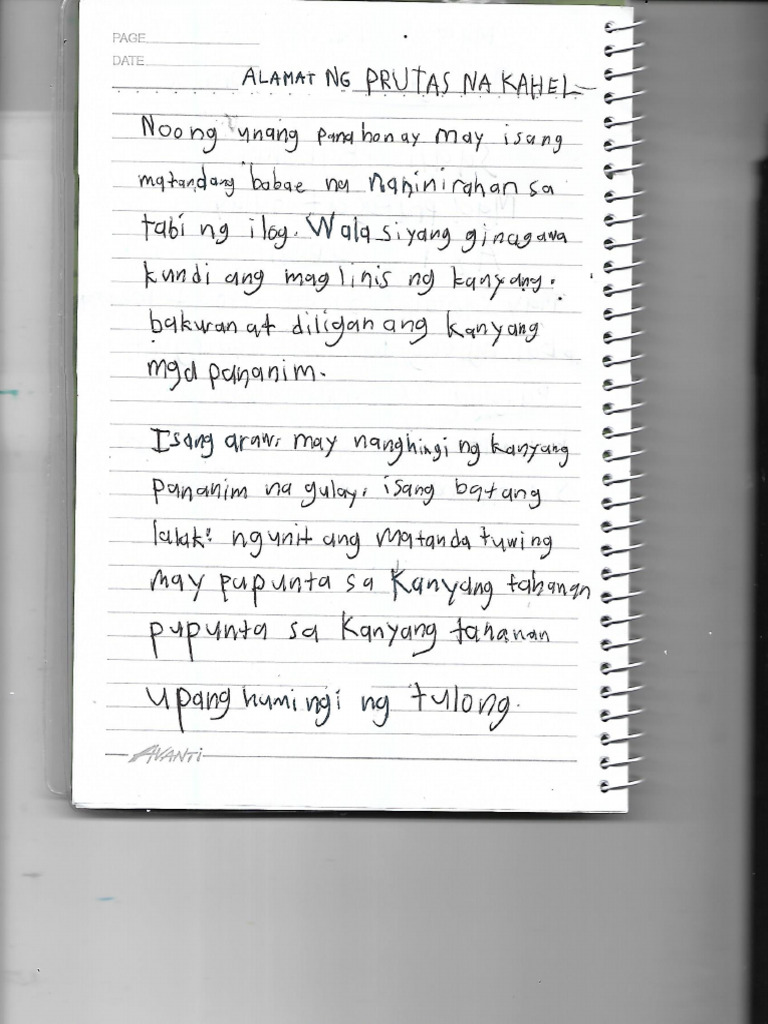 PAGE
DATE
ALAMAT NG PRUTAS NA KAHEL
Noong unang panahon ay may isang
matandang babae na naninirahan sa
tabi ng ilog. Wala siyang ginagawa
kundi ang maglinis ng kanyang.
bakuran at diligan ang kanyang
mga pananim.
Isang araw, may nanghingi ng kanyang
pananim na gulay, isang batang
lalaki ngunit ang matanda tuwing
may pupunta sa kanyang tahanan
pupunta sa kanyang tahanan
upang humingi ng tulong.
AVANTi